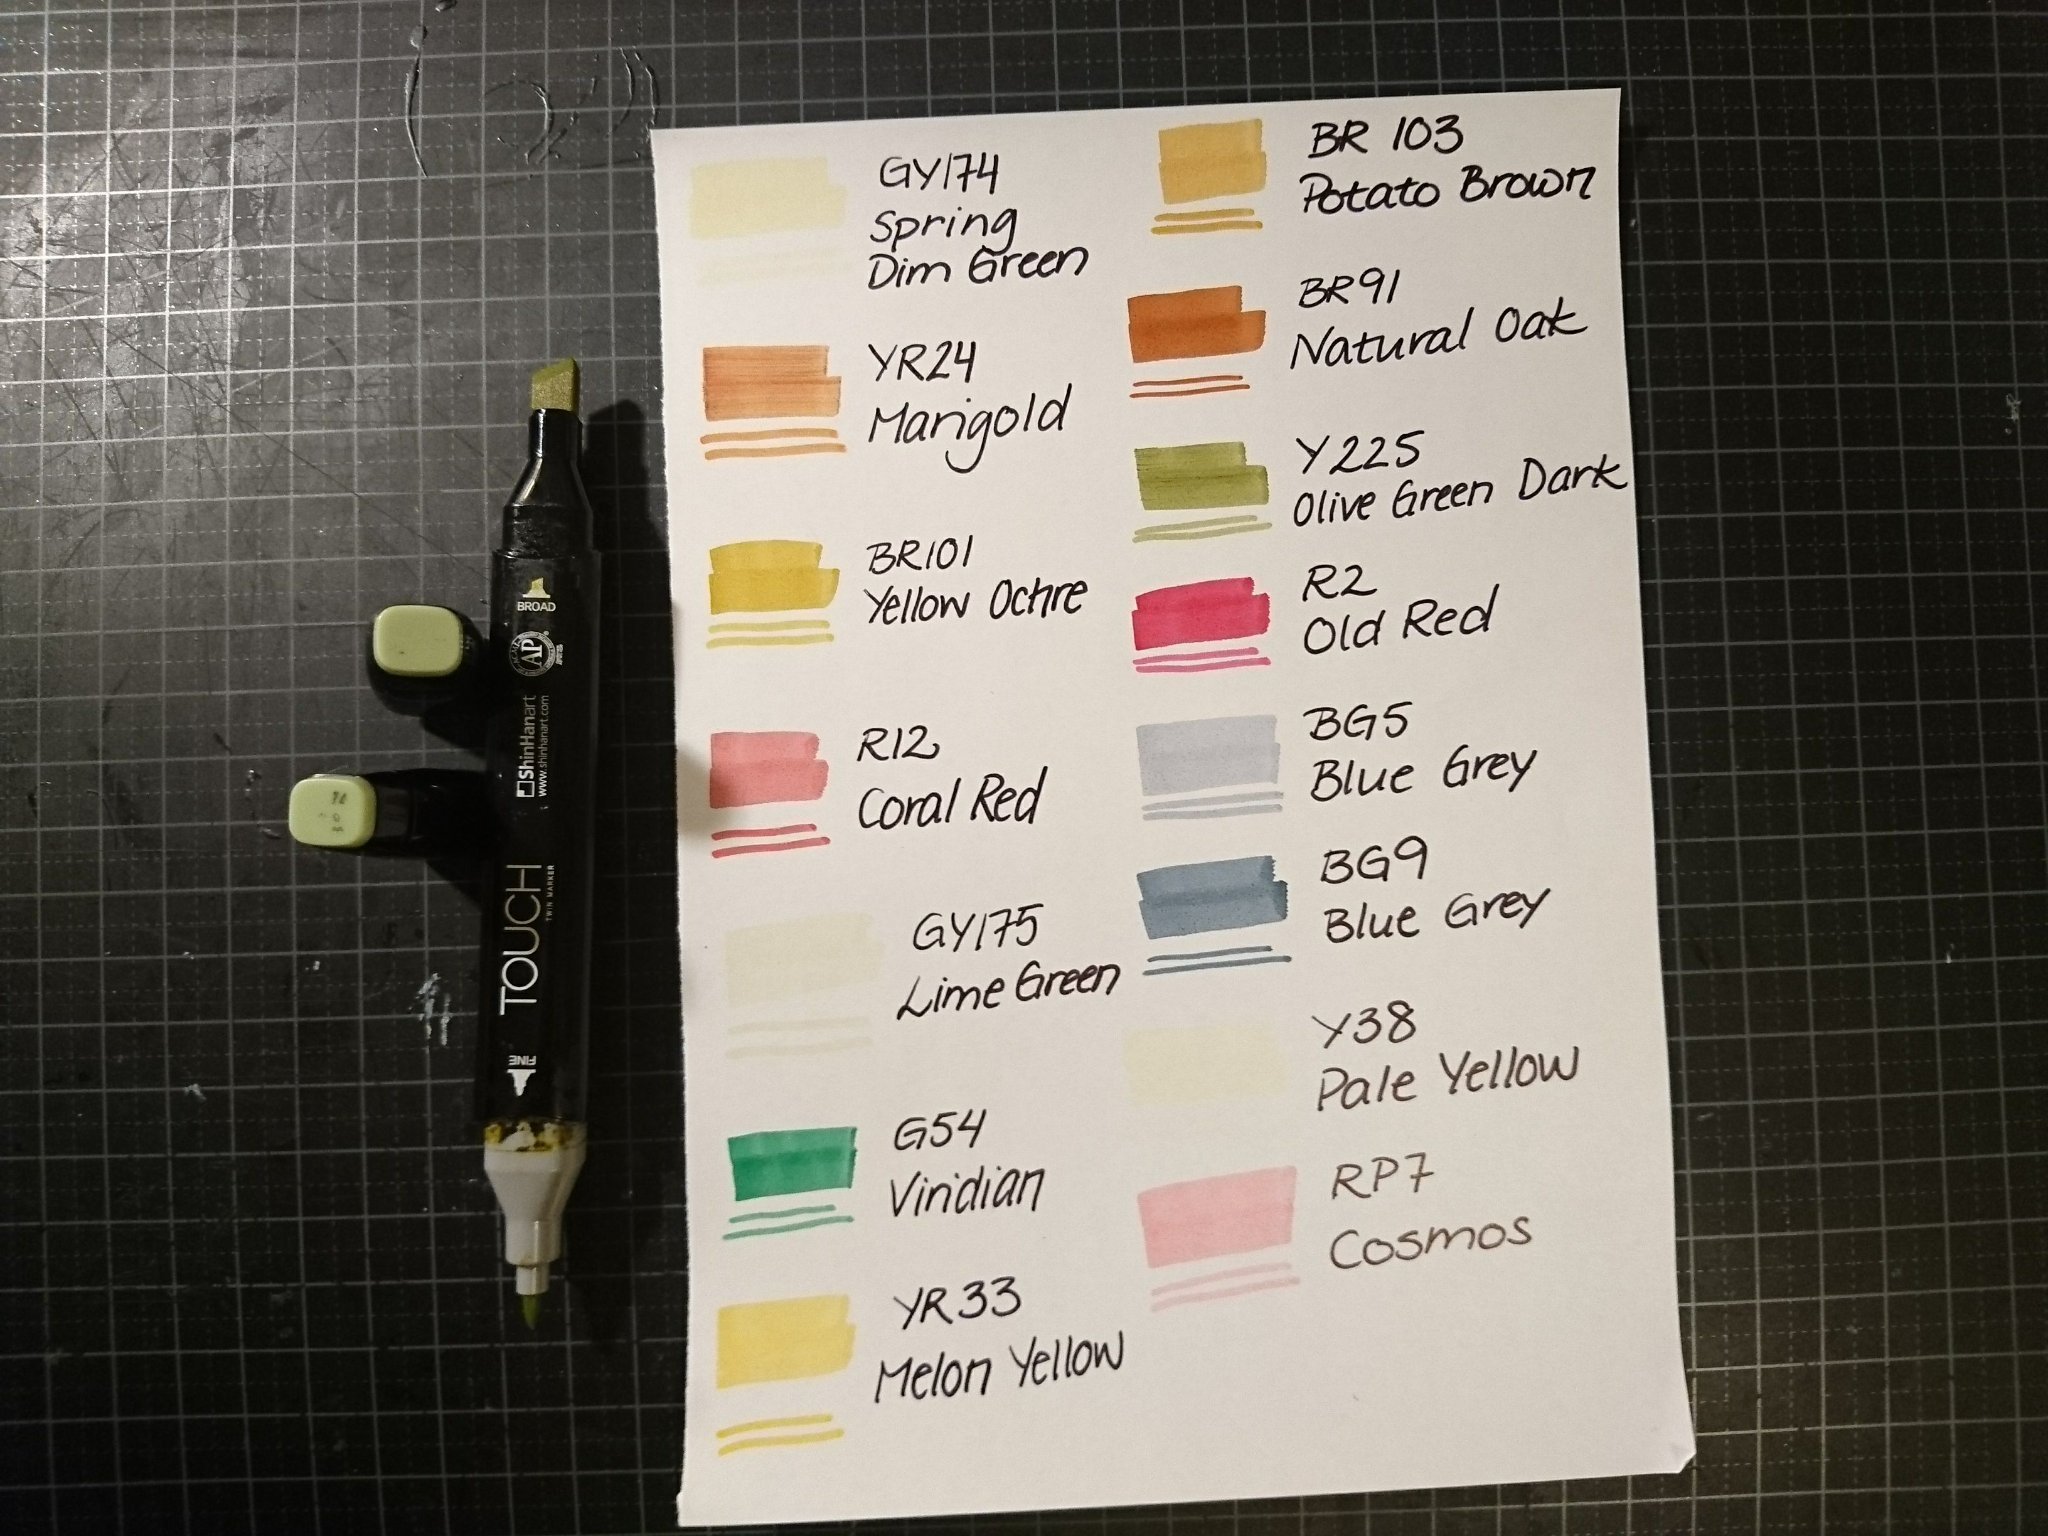 BROAD
AP
ShinHanart
www.shinhanart.com
TOUCH
TWIN MARKER
FINE
GY174
Spring
Dim Green
YR24
Marigold
BR101
Yellow Ochre
R12
Coral Red
GY175
Lime Green
G54
Viridian
YR33
Melon Yellow
BR 103
Potato Brown
BR91
Natural Oak
Y225
Olive Green Dark
R2
Old Red
BG5
Blue Grey
BG9
Blue Grey
Y38
Pale Yellow
RP7
Cosmos